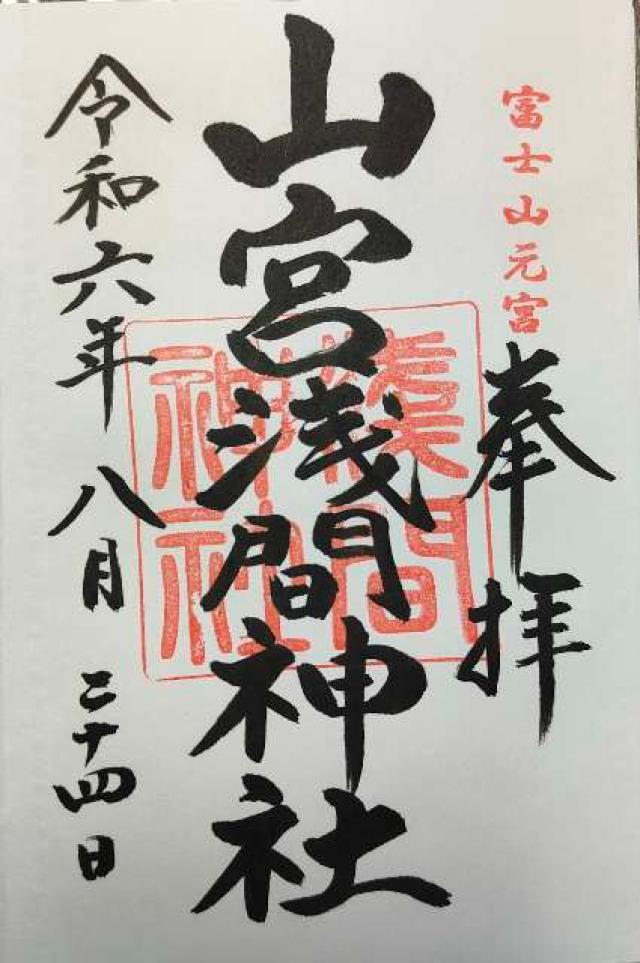 富士山元宮
奉拝
山宮浅間神社
浅間
神社
令和六年八月二十四日